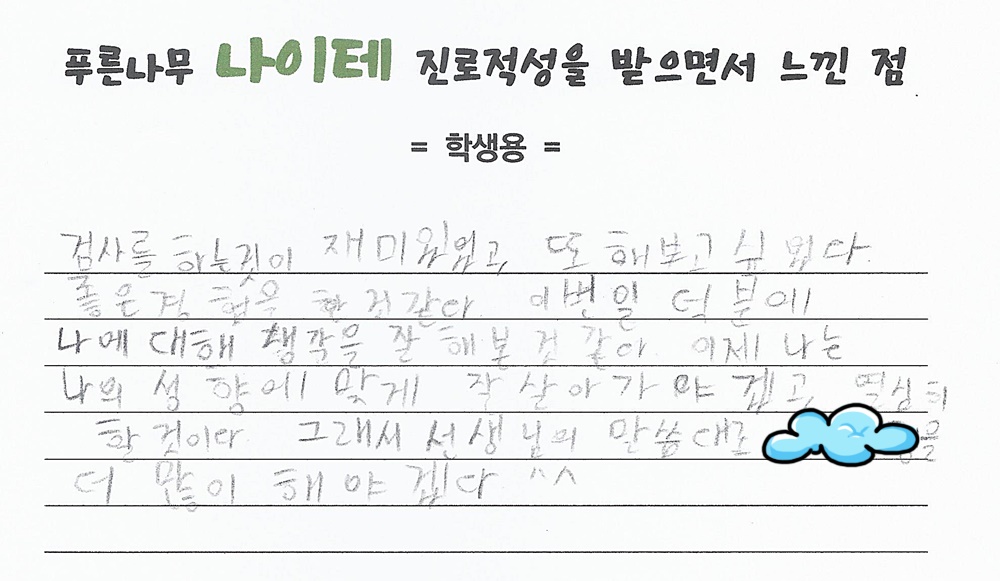 푸른나무 나이테 진로적성을 받으면서 느낀 점
= 학생용 =
검사를 하는것이 재미있었고, 또 해보고 싶었다.
좋은경험을 한 것같다. 이번일 덕분에
나에 대해 생각을 잘 해본 것 같아. 이제 나는
나의 성향에 맞게 잘 살아가야겠고, 열심히
할 것이다. 그래서 선생님의 말씀대로 을
더 많이 해야겠다 ^^